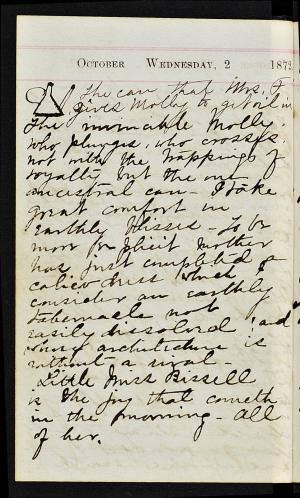 October Wednesday, 2 1872
The can that Mrs. F
gives Molly to get oil in
The invincible Molly
who plunges, who crosses,
not with the trappings of
royalty but the one
ancestral can - I take
great comfort in
Earthly blisses - To be
more explicit Mother
has just completed a
calico dress which I
consider an earthly
tabernacle not
easily dissolved! and
whose architecture is
without a rival -
Little Miss Bissell
is the joy that cometh
in the morning - All
of her.